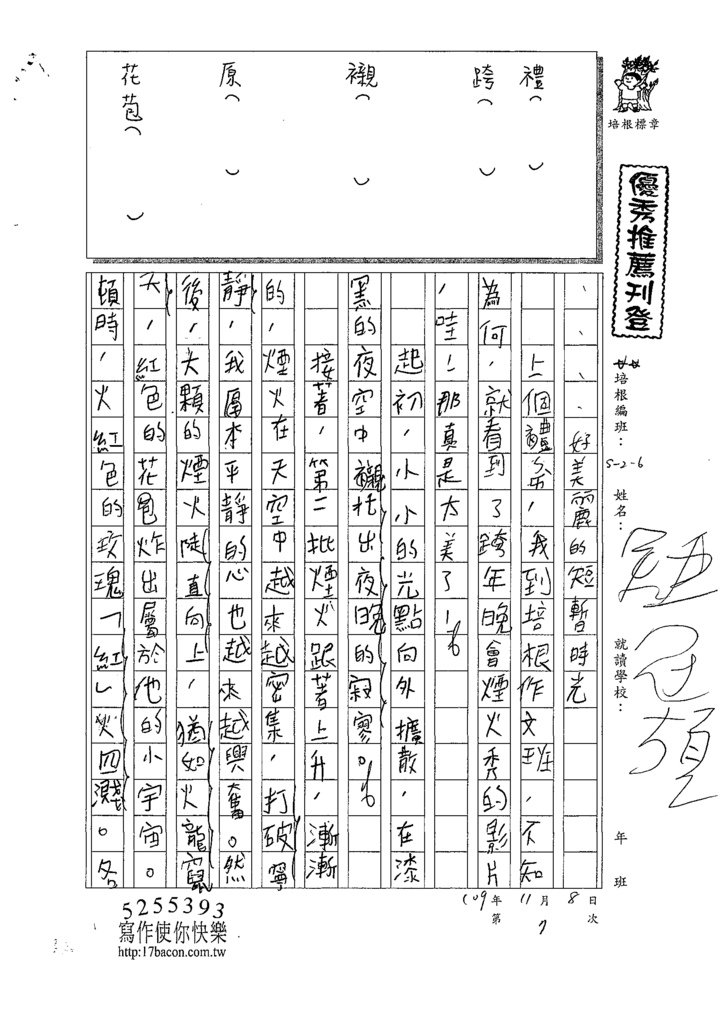 禮（　）
跨（　）
襯（　）
原（　）
花苞（　）
培根標章
優秀推薦刊登
培根編班：
S-2-6
姓名：
就讀學校：
年 班
109年11月8日
第7次
、、、好美麗的短暫時光
上個禮拜，我到培根作文班，不知
為何，就看到了跨年晚會煙火秀的影片
，哇！那真是太美了！
起初，小小的光點向外擴散，在漆
黑的夜空中襯托出夜晚的寂寥。
接著，第二批煙火跟著上升，漸漸
的，煙火在天空中越來越密集，打破寧
靜，我原本平靜的心也越來越興奮。然
後，大顆的煙火陡直向上，猶如火龍竄
天，紅色的花苞炸出屬於他的小宇宙。
頓時，火紅色的玫瑰「紅」火四濺。各
5255393
寫作使你快樂
http:17bacon.com.tw